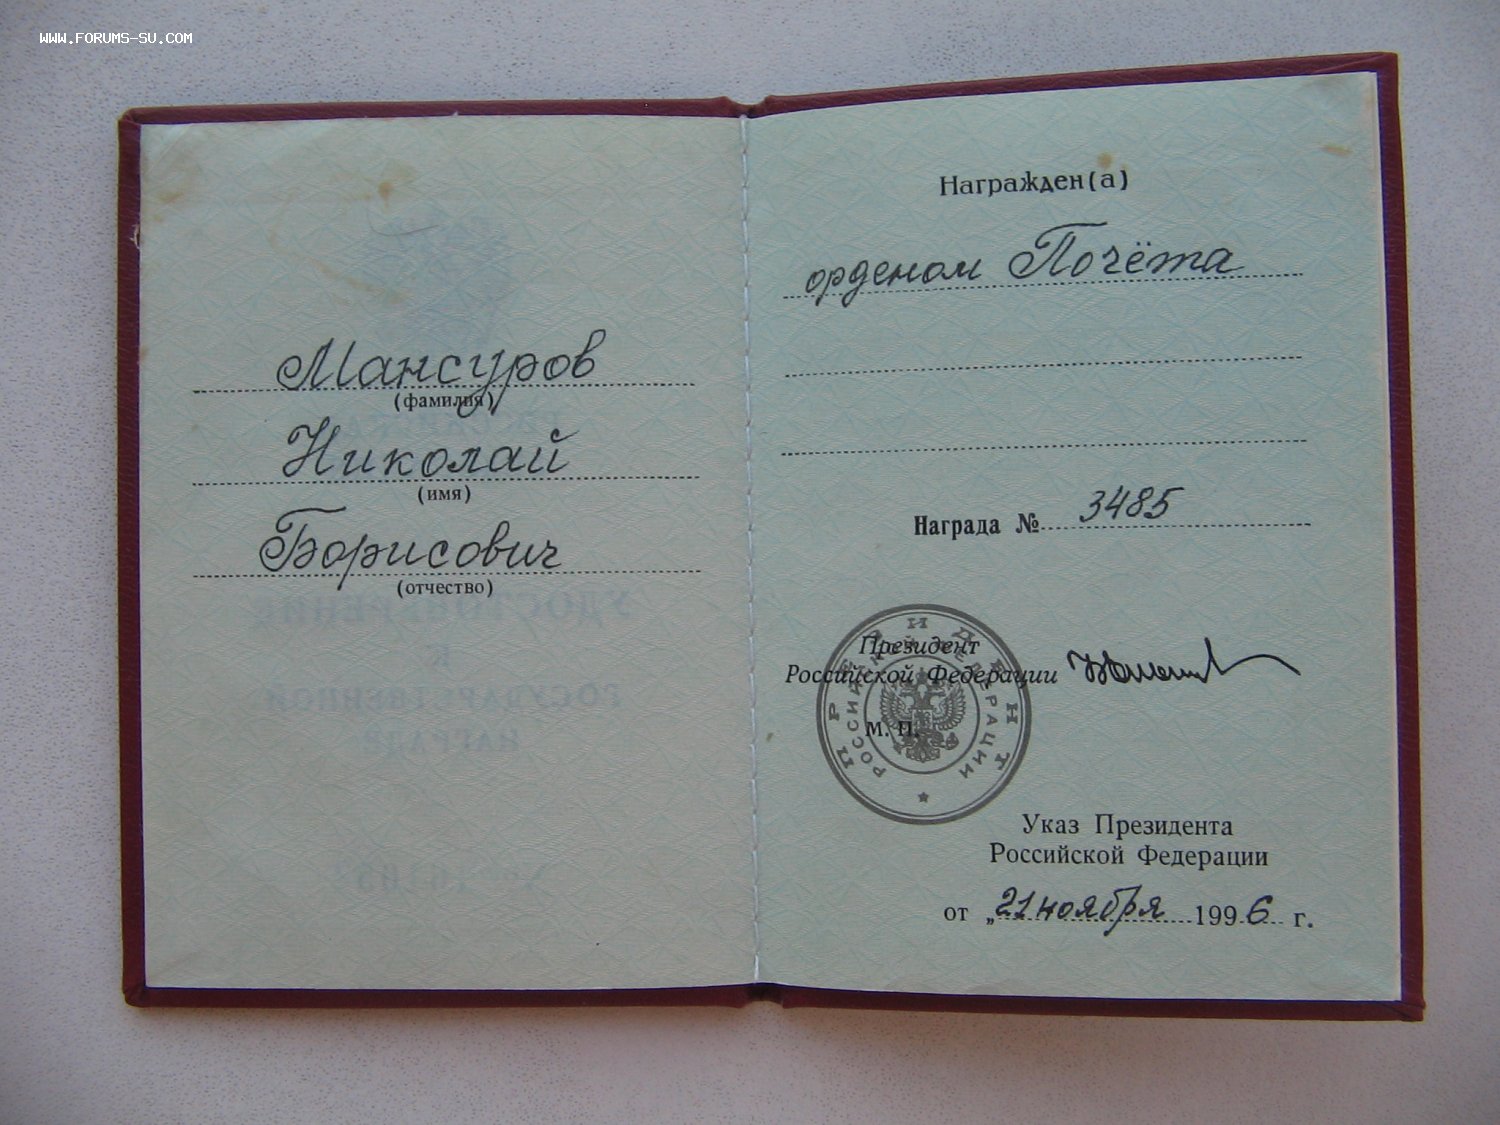 WWW.FORUMS-SU.COM
Мансуров
(фамилия)
Николай
(имя)
Борисович
(отчество)
Награжден(а)
орденом Почёта
Награда № 3485
Президент
Российской Федерации
М. П.
ПРЕЗИДЕНТ
РОССИЙСКОЙ ФЕДЕРАЦИИ
Указ Президента
Российской Федерации
от „21 ноября 1996 г.